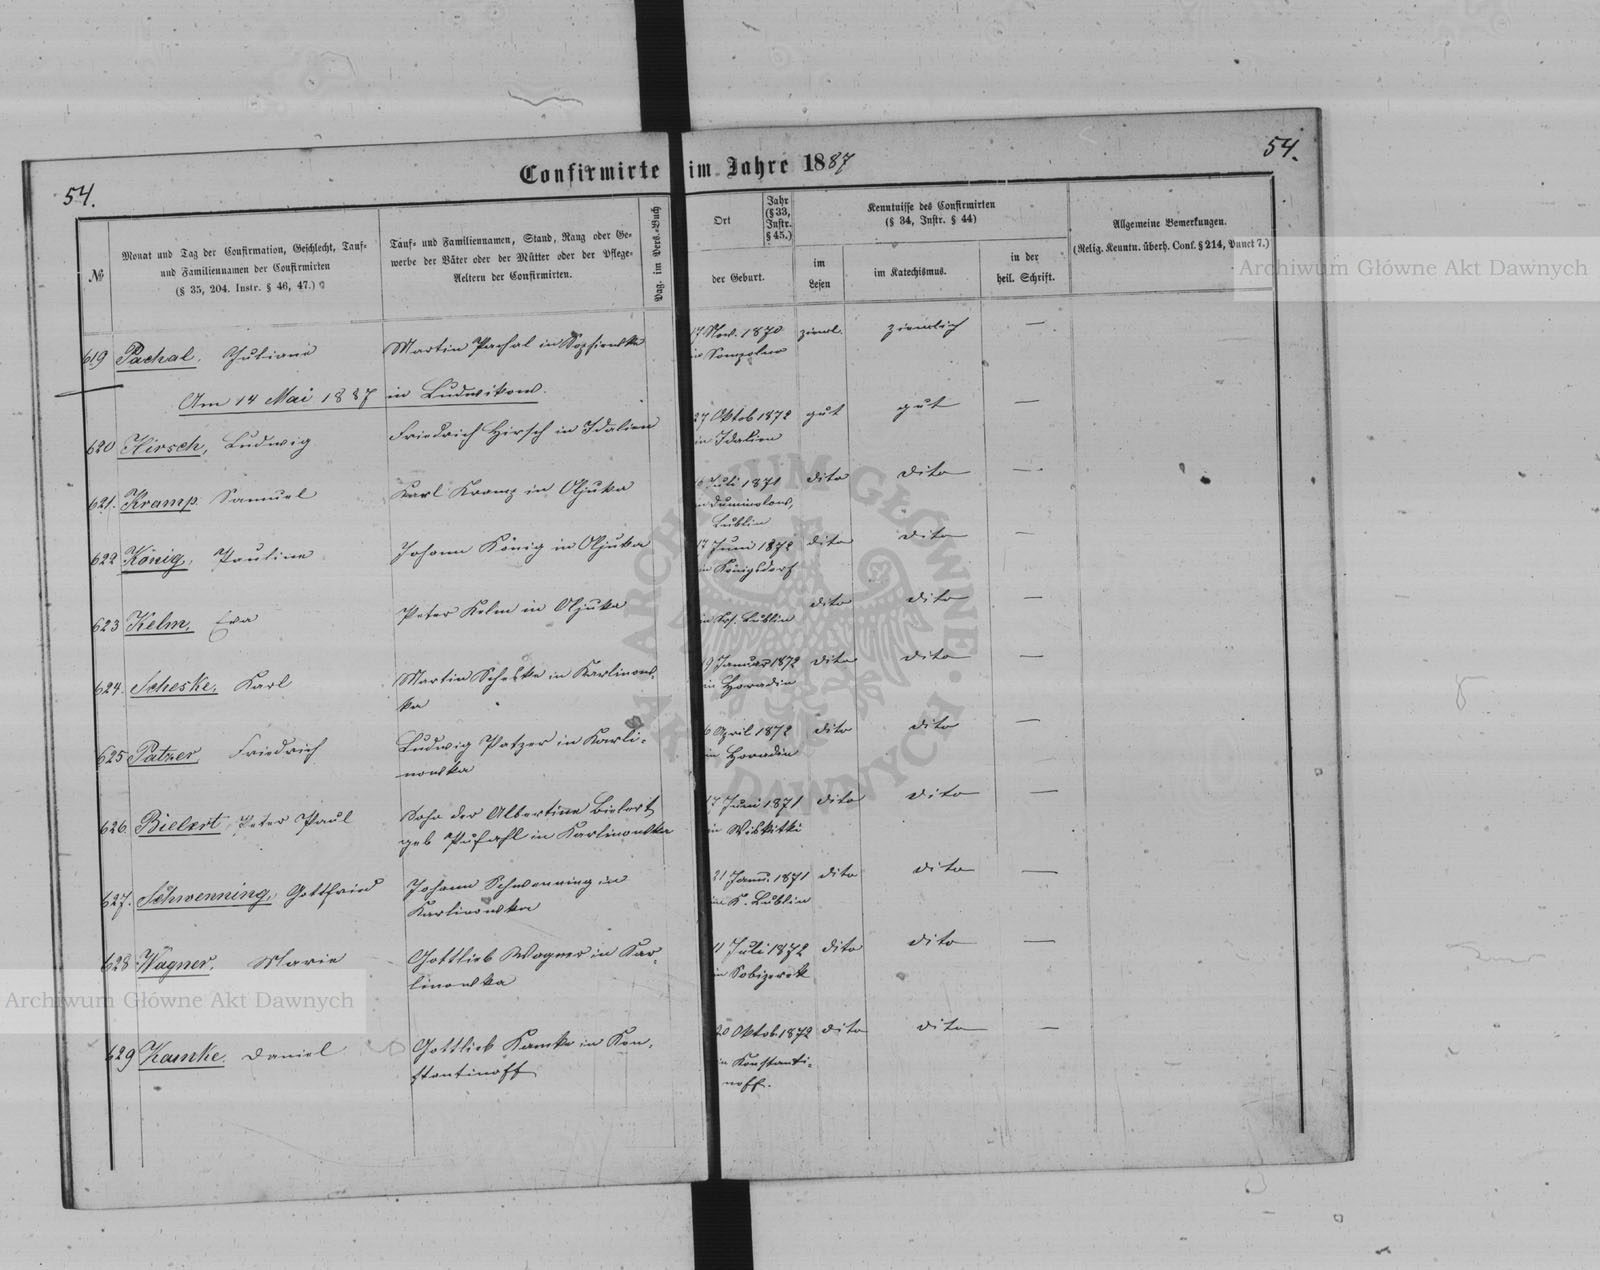 54.
Confirmirte im Jahre 1887
54.
№
Monat und Tag der Confirmation, Geschlecht, Tauf-
und Familiennamen der Confirmirten
(§ 35, 204. Instr. § 46, 47.)
Tauf- und Familiennamen, Stand, Rang oder Ge-
werbe der Väter oder der Mütter oder der Pflege-
Aeltern der Confirmirten.
Pag. im Pers.-Buch
Ort
Jahr
(§ 33,
Instr.
§ 45.)
der Geburt.
Kenntnisse des Confirmirten
(§ 34, Instr. § 44)
im
Lesen
im Katechismus.
in der
heil. Schrift.
Allgemeine Bemerkungen.
(Relig. Kenntn. überh. Conf. § 214, Punct 7.)
619 Pachal, Juliane
Martin Pachal in
17 Nov. 1870
in Sompolno
zieml. ziemlich —
Am 14 Mai 1887 in Ludwikow.
620 Hirsch, Ludwig
Friedrich Hirsch in Idalien
27 Oktob 1872
in Idalien
gut gut —
621. Kramp. Samuel
Karl Kramp in Olyuka
Juli 1871
Lublin
dito dito —
622 König, Pauline
Johann König in Olyuka
17 Juni 1872
in Königsdorf
dito dito —
623 Kelm, Eva
Peter Kelm in Olyuka
Lublin
dito dito —
624. Scheske, Karl
Martin Scheske in Karlinows-
ka
19 Januar 1872
in Horodin
dito dito —
625 Patzer, Friedrich
Ludwig Patzer in Karli-
nowka
6 April 1872
in Horodin
dito dito —
626. Bielert, Peter Paul
Sohn der Albertine Bielert
geb Pufahl in Karlinowka
17 Juni 1871
in Wiskitki
dito dito —
627. Schwenning, Gottfried
Johann Schwenning in
Karlinowka
21 Janu. 1871
in K. Lublin
dito dito —
628 Wagner. Marie
Gottlieb Wagner in Kar-
linowka
11 Juli 1872
dito dito —
629 Kamke. Daniel
Gottlieb Kamke in Kon-
stantinoff
20 Oktob. 1872
in Konstanti-
noff.
dito dito —
Archiwum Główne Akt Dawnych
Archiwum Główne Akt Dawnych
ARCHIWUM GŁÓWNE AKT DAWNYCH